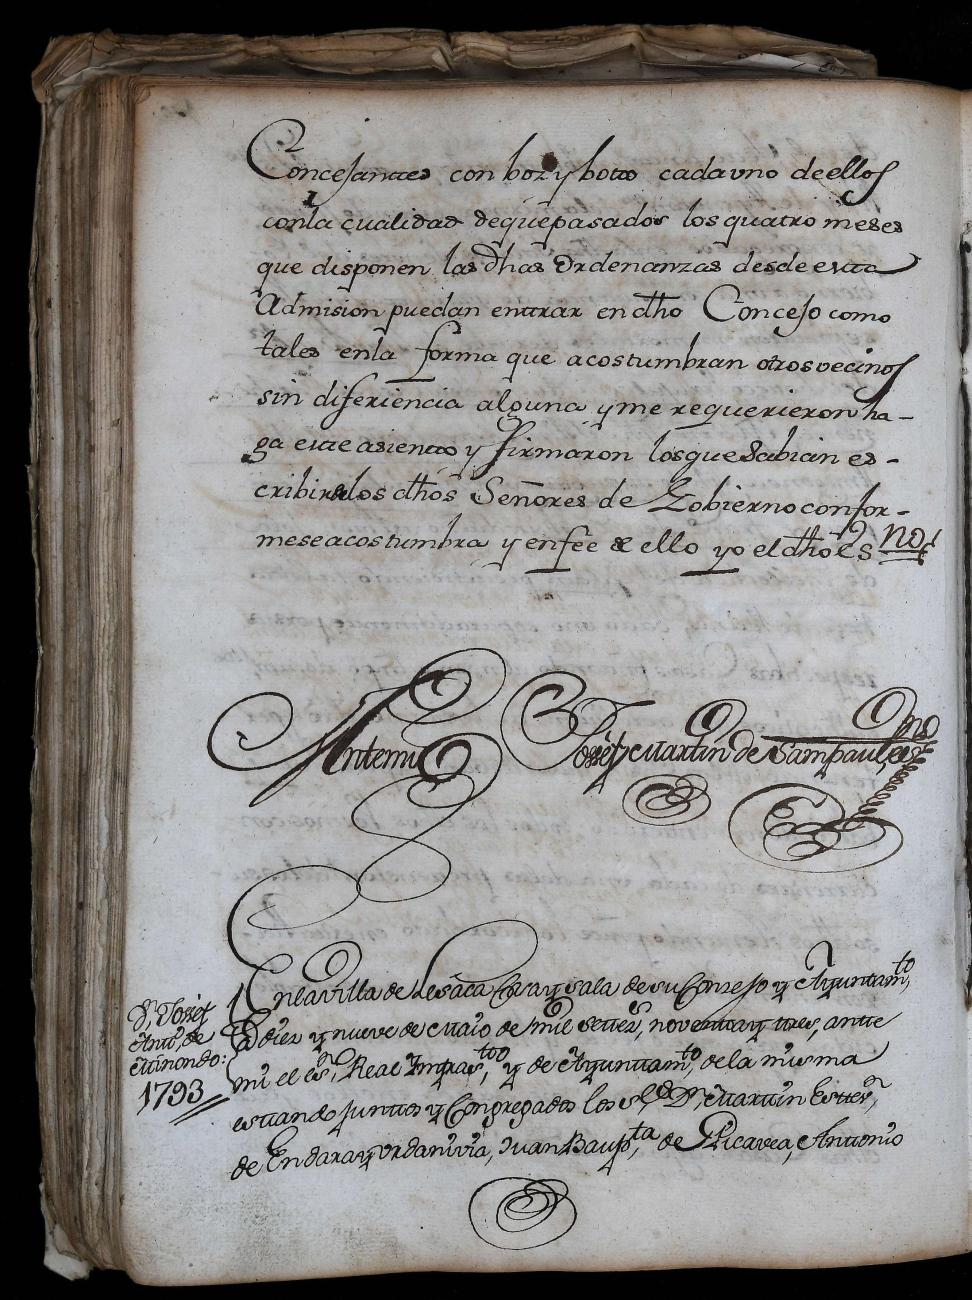 Concejantes con boz y botto cada vno de ellos
con la cualidad de que pasados los quatro meses
que disponen las dhas Ordenanzas desde esta
Admision puedan entrar en dho Concejo como
tales en la forma que acostumbran otros vecinos
sin diferiencia alguna y me requerieron ha-
ga este asiento y firmaron los que Sabian es-
cribir de los dhos Señores de Gobierno confor-
me se acostumbra y en fee de ello yo el dho Es.no
Antemi Josef Martin de Sampaul, es.no
En la villa de Lesaca Casa y sala de su Consejo y Ayuntam.to
D.n Josef
Ant.o de
Marinondo:
1793
a diez y nueve de Maio de mil settez.s noventa y tres, ante
mi el es.no Real Infras.tto, y de Ayuntam.to, de la misma
estando juntos y Congregados los S.res D.n Martin Estev.n
de Endara y Vrdanivia, Juan Baup.ta de Picavea, Antonio